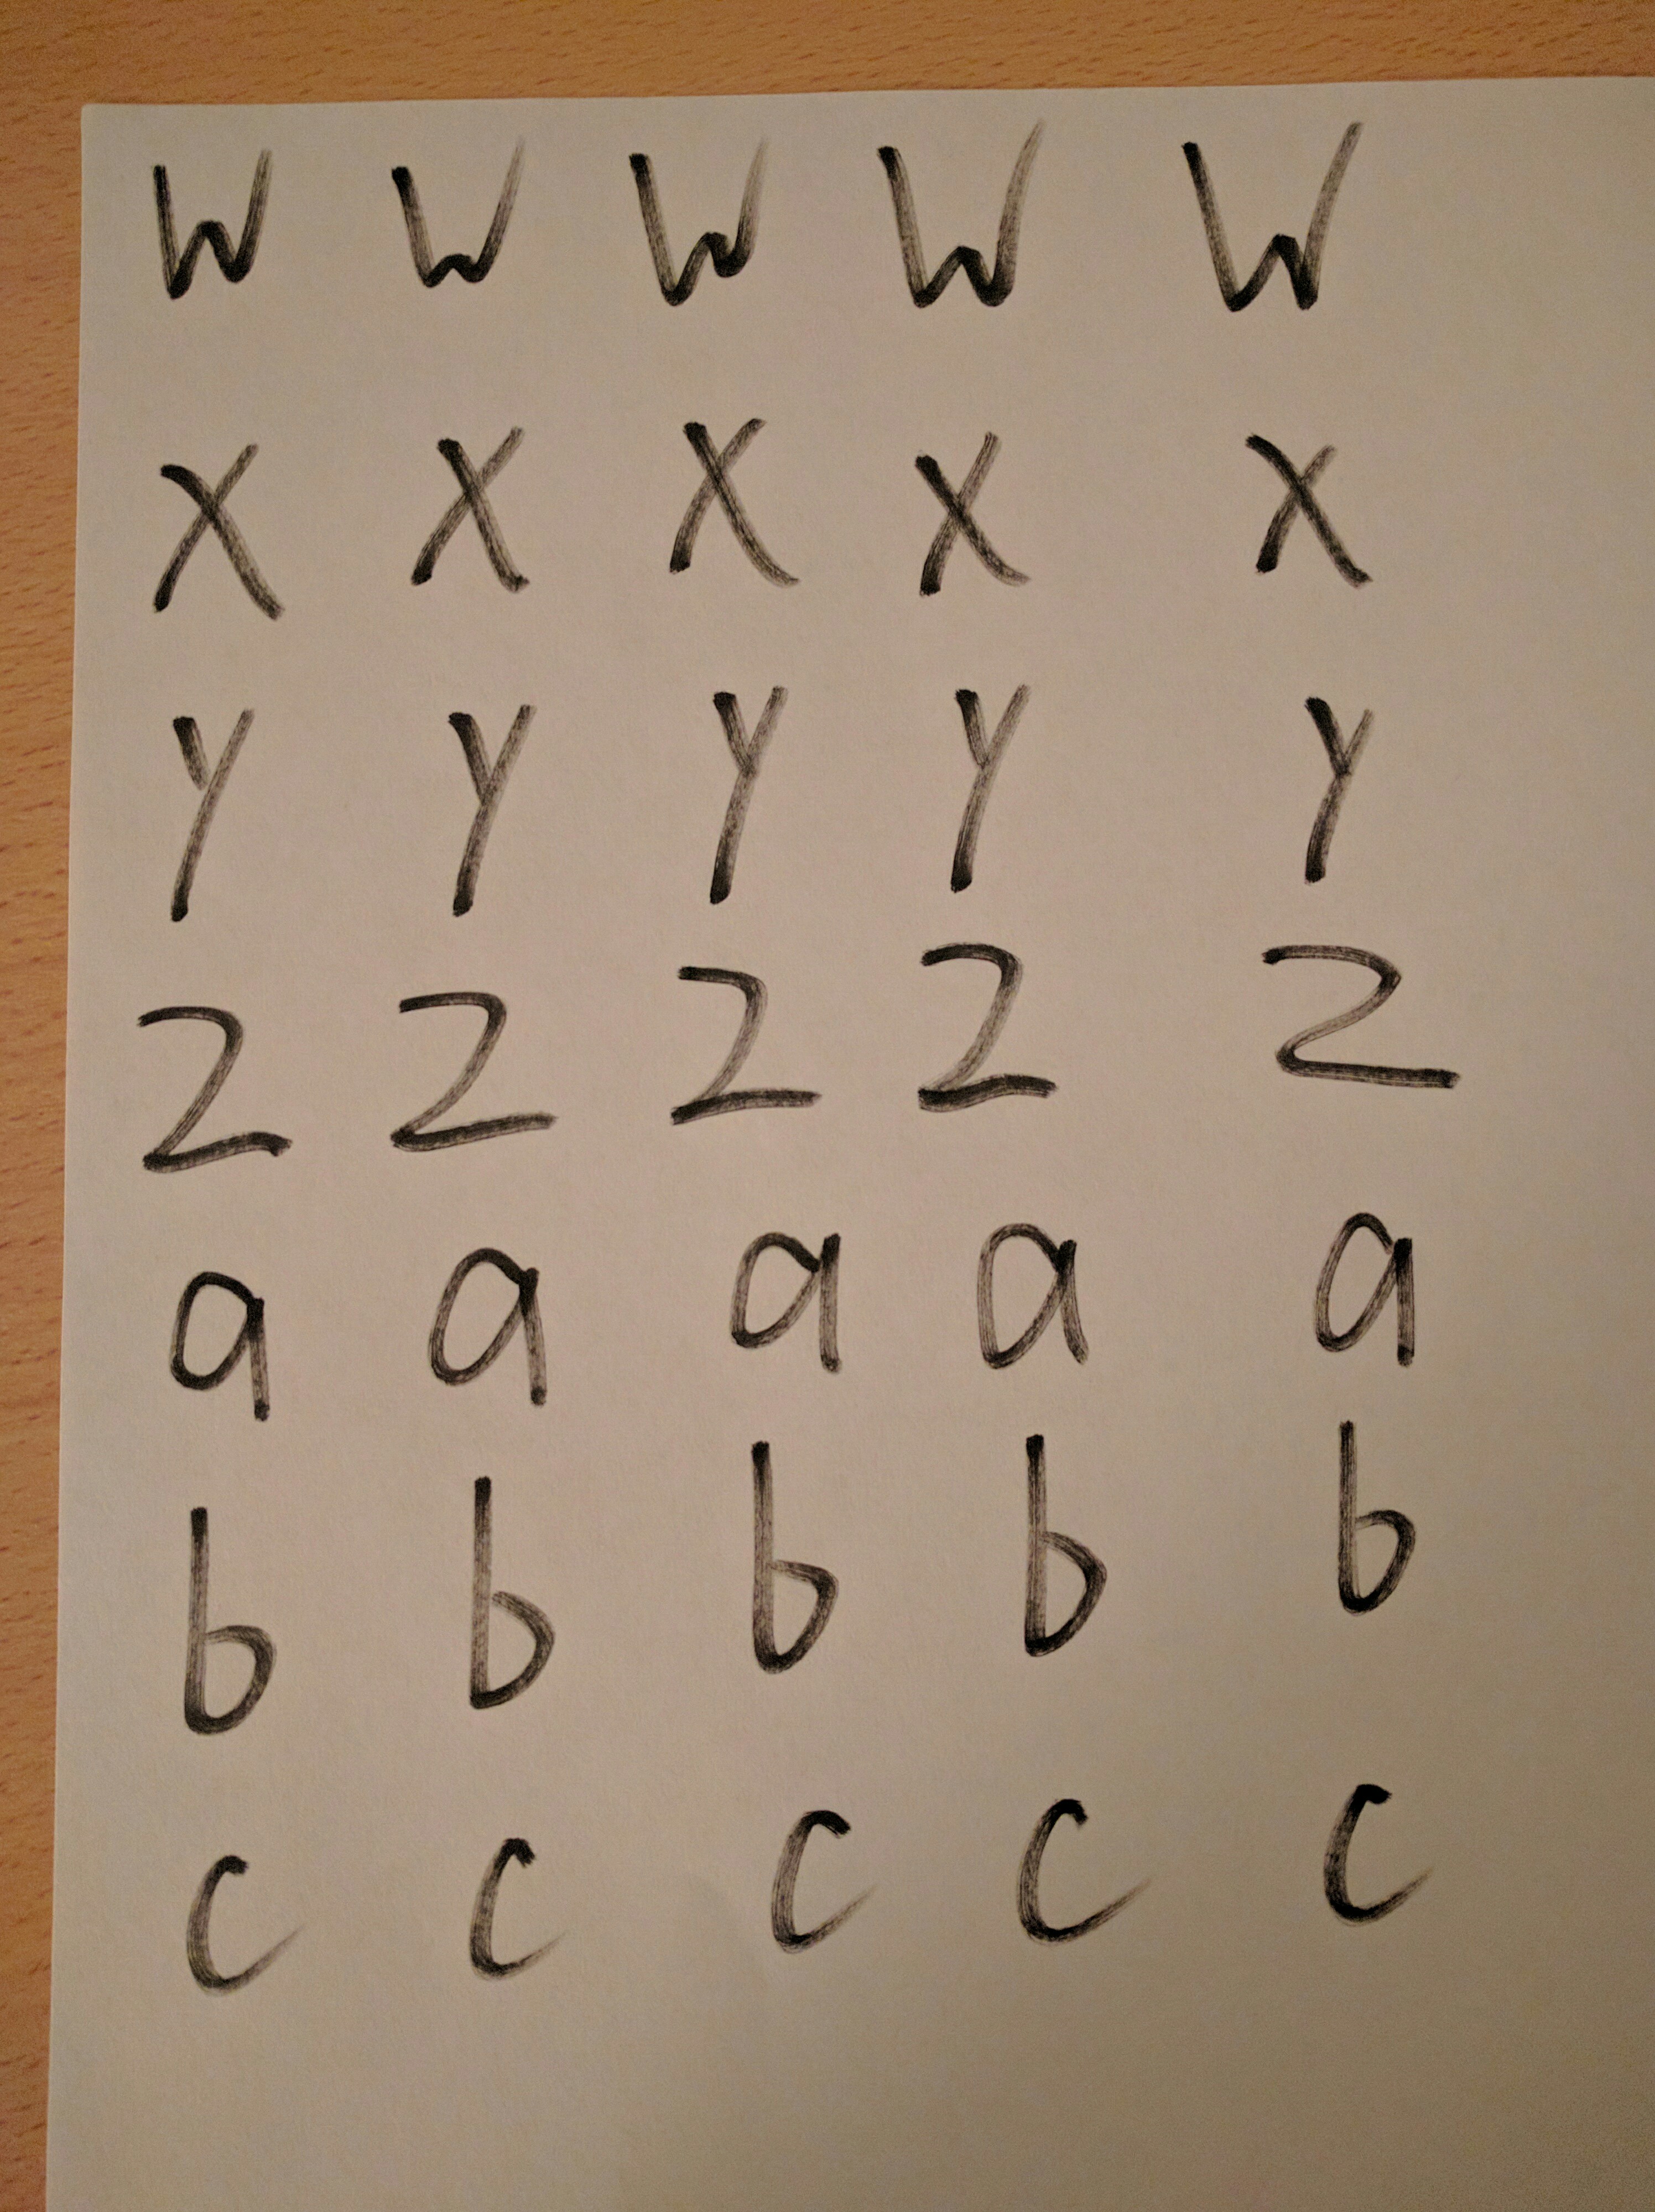 W W W W W
X X X X X
Y Y Y Y Y
Z Z Z Z Z
a a a a a
b b b b b
c c c c c